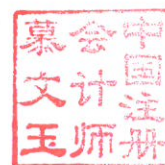 中国注册
会计师
慕文玉